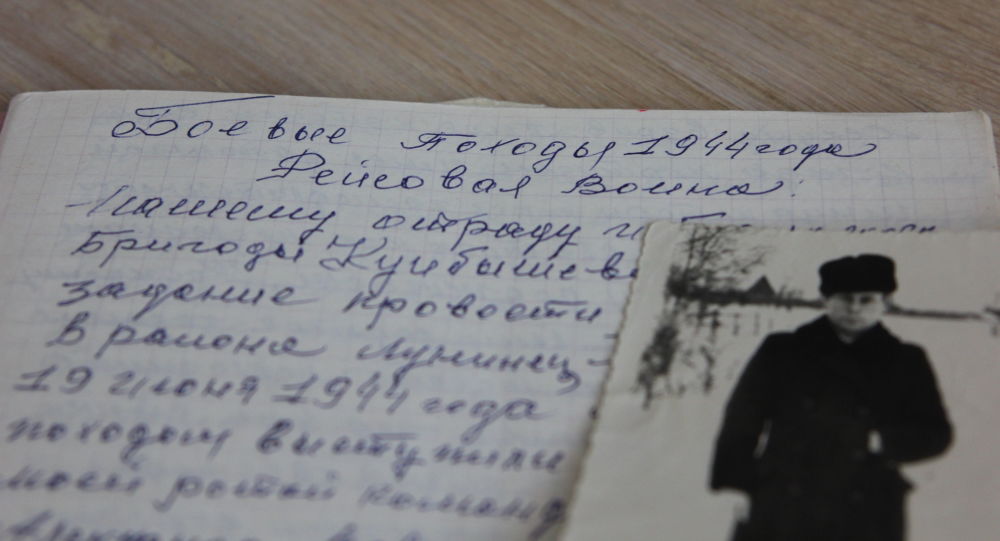 Боевые Походы 1944 года
Рейсовая Война:
Нашему отряду и
Бригады Куйбышев
задание провести
в районе Лунинец-
19 июня 1944 года
походом выступили
моей ротой команд